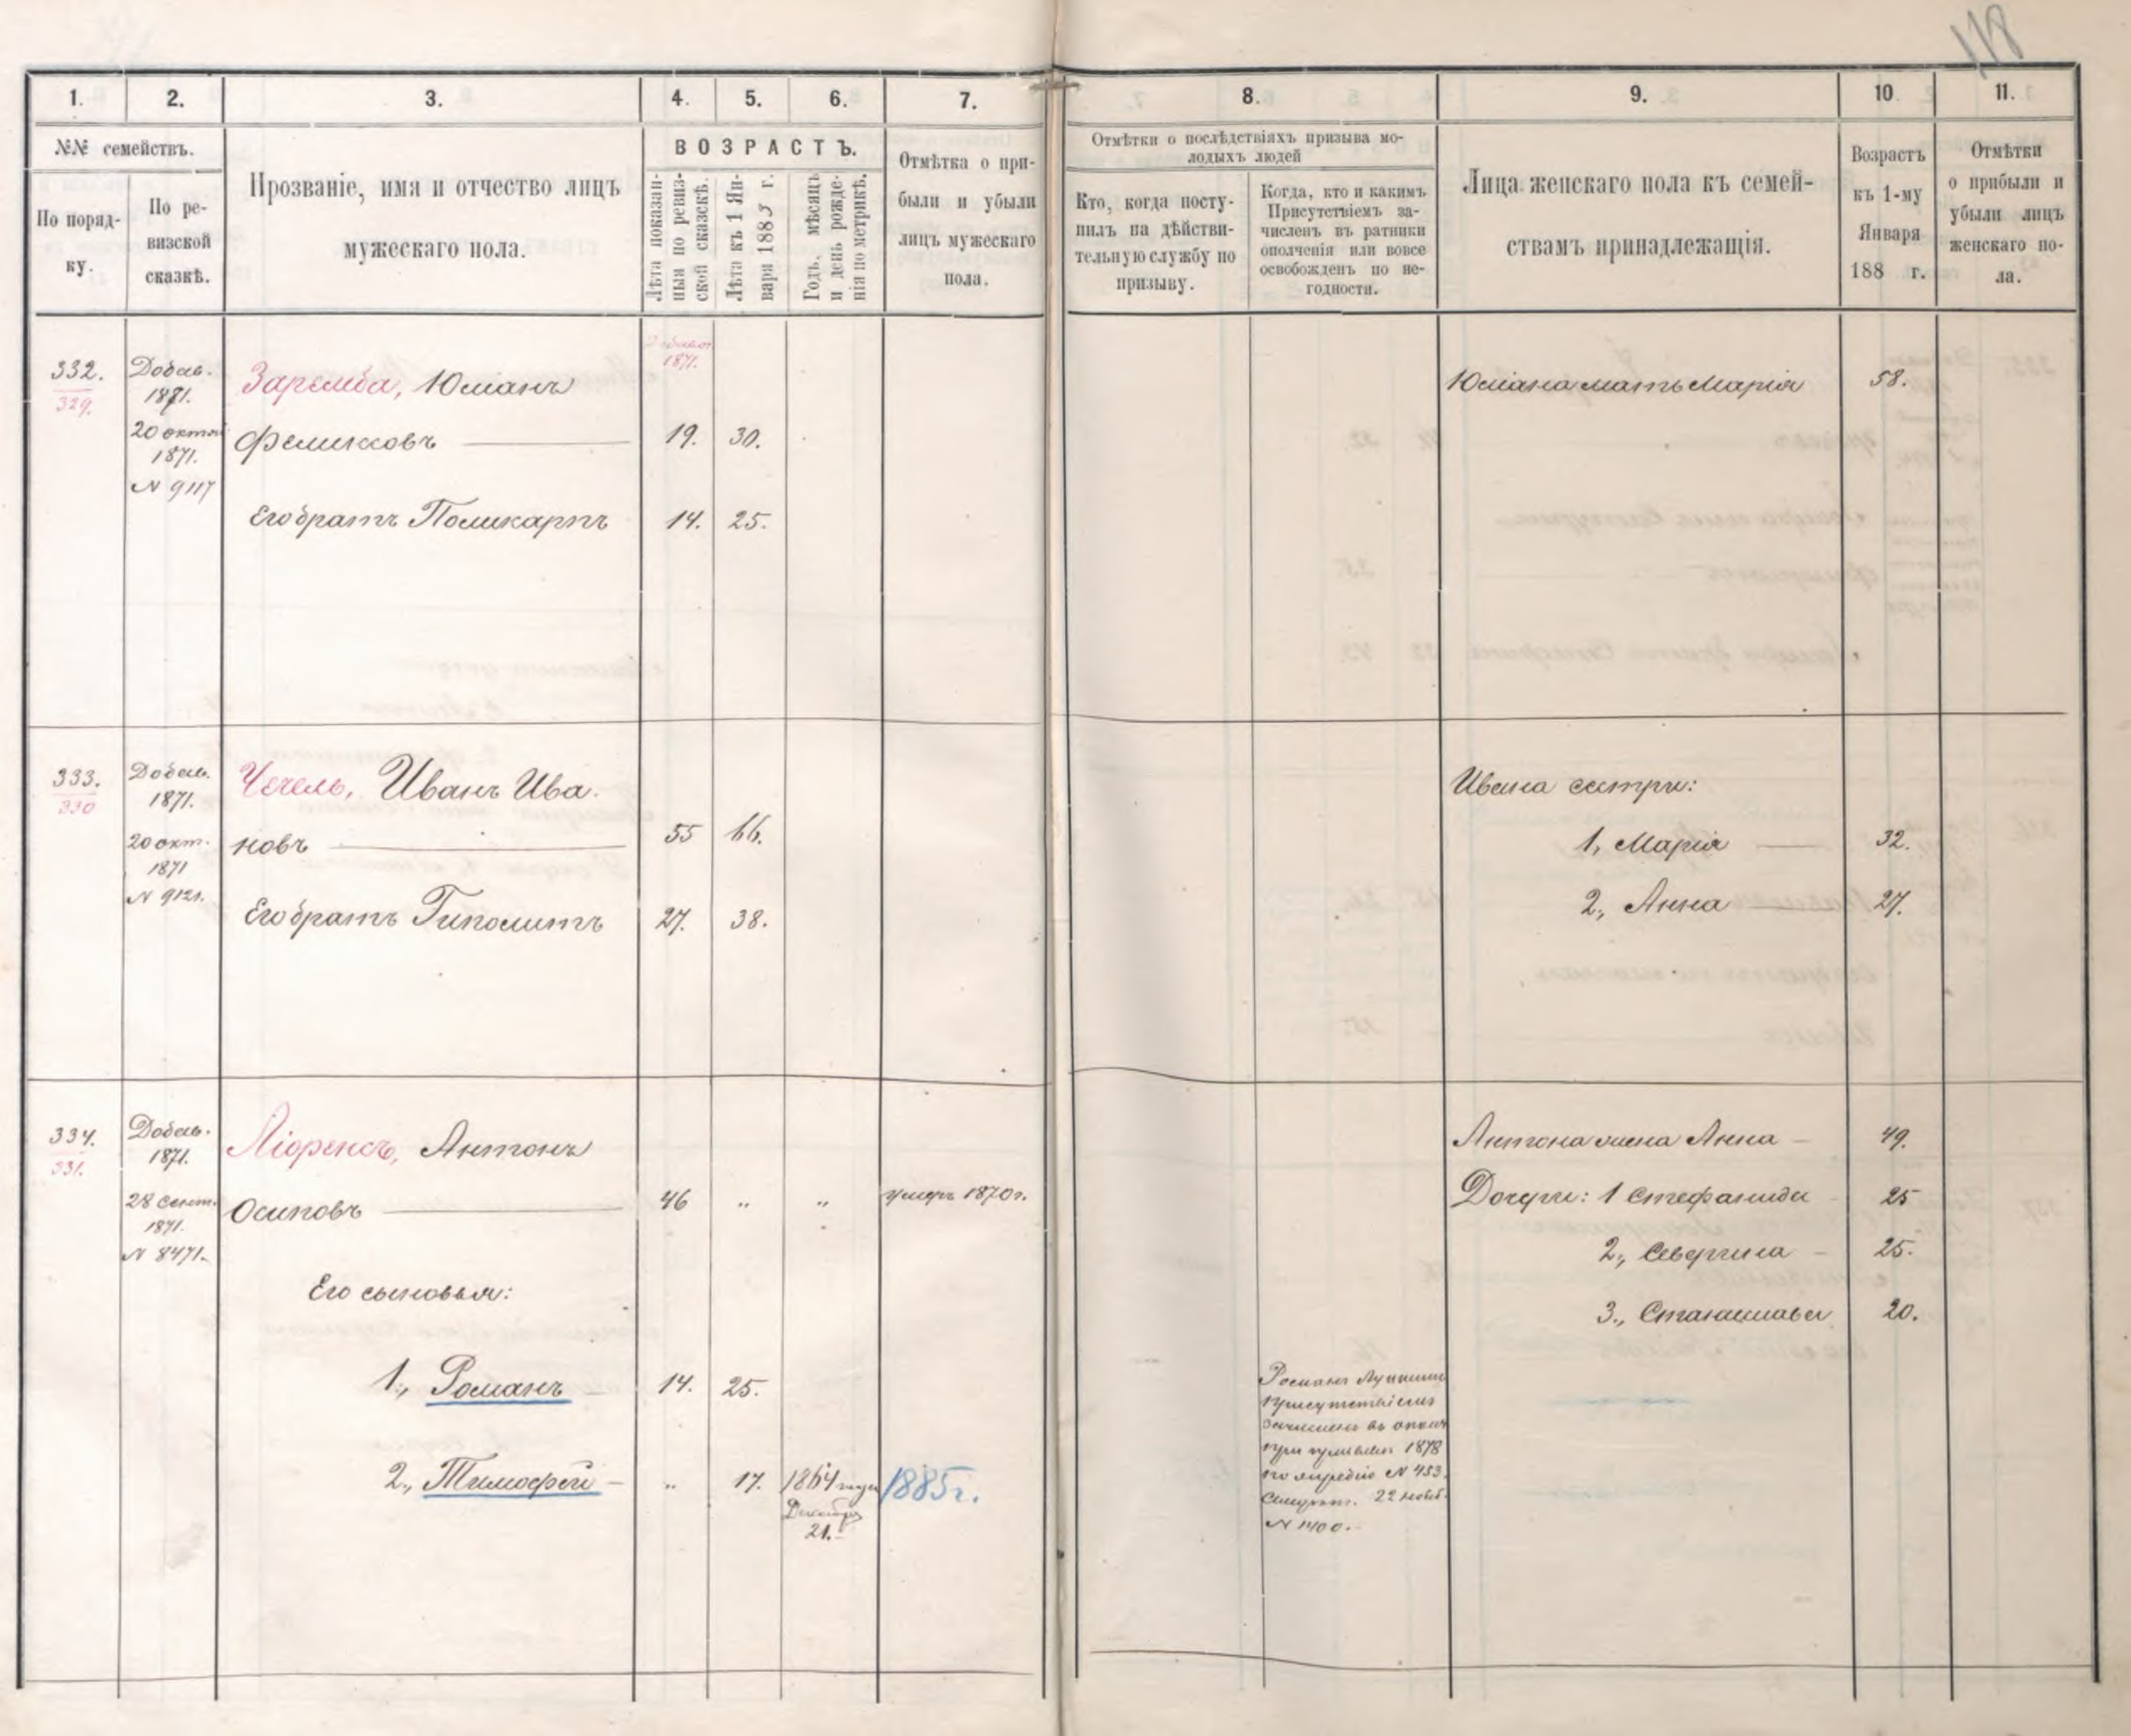 118
1.
2.
3.
4.
5.
6.
7.
8.
9.
10
11.
№№ семействъ.
По поряд-
ку.
По ре-
визской
сказкѣ.
Прозваніе, имя и отчество лицъ
мужескаго пола.
ВОЗРАСТЪ.
Лѣта показан-
ныя по ревиз-
ской сказскѣ.
Лѣта къ 1 Ян-
варя 1883 г.
Годъ, мѣсяцъ
и день рожде-
нія по метрикѣ.
Отмѣтка о при-
были и убыли
лицъ мужескаго
пола.
Отмѣтки о послѣдствіяхъ призыва мо-
лодыхъ людей
Кто, когда посту-
пилъ на дѣйстви-
тельную службу по
призыву.
Когда, кто и какимъ
Присутствіемъ за-
численъ въ ратники
ополченія или вовсе
освобожденъ по не-
годности.
Лица женскаго пола къ семей-
ствамъ принадлежащія.
Возрастъ
къ 1-му
Января
188 г.
Отмѣтки
о прибыли и
убыли лицъ
женскаго по-
ла.
332.
329.
Добав.
1871.
20 октяб
1871.
N 9117
Заремба, Юліанъ
Феликсовъ
1871.
19. 30.
Его братъ Поликарпъ 14. 25.
Юліана мать Марія 58.
333.
330
Добав.
1871.
20 окт.
1871
N 9121.
Чечель, Иванъ Ива-
новъ 55 66.
Его братъ Гиполитъ 27. 38.
Ивана сестры:
1, Марія 32.
2, Анна 27.
334.
331.
Добав.
1871.
28 сент.
1871.
N 8471.
Ліоренсъ, Антонъ
Осиповъ 46 „ „ умеръ 1870 г.
Его сыновья:
1, Романъ 14. 25.
2, Тимофей „ 17. 1864 года
Декабря
21.
1885 г.
Романъ
Присутствіемъ
зачисленъ въ
при призывѣ 1878
по жребію N 453.
22 нояб.
N 1400.
Антона жена Анна 49.
Дочери: 1 Стефанида 25
2, Северина 25.
3, Станислава 20.